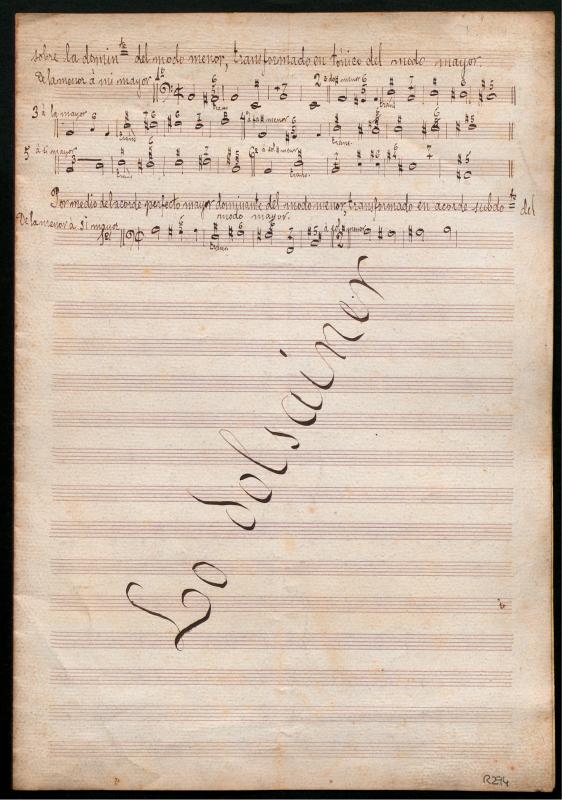 sobre la domin.te del modo menor, transformado en tónica del modo mayor.
De la menor á mi mayor 1º 2 á do# menor
trans trans
3º á la mayor 4º á fa# menor
trans. trans.
5 á si mayor 6º á sol# menor
trans trans.
Por medio del acorde perfecto mayor dominante del modo menor, transformado en acorde subdo.te del
modo mayor.
De la menor á Si mayor
1er á sol# menor
trans
Lo dolsainer
R294